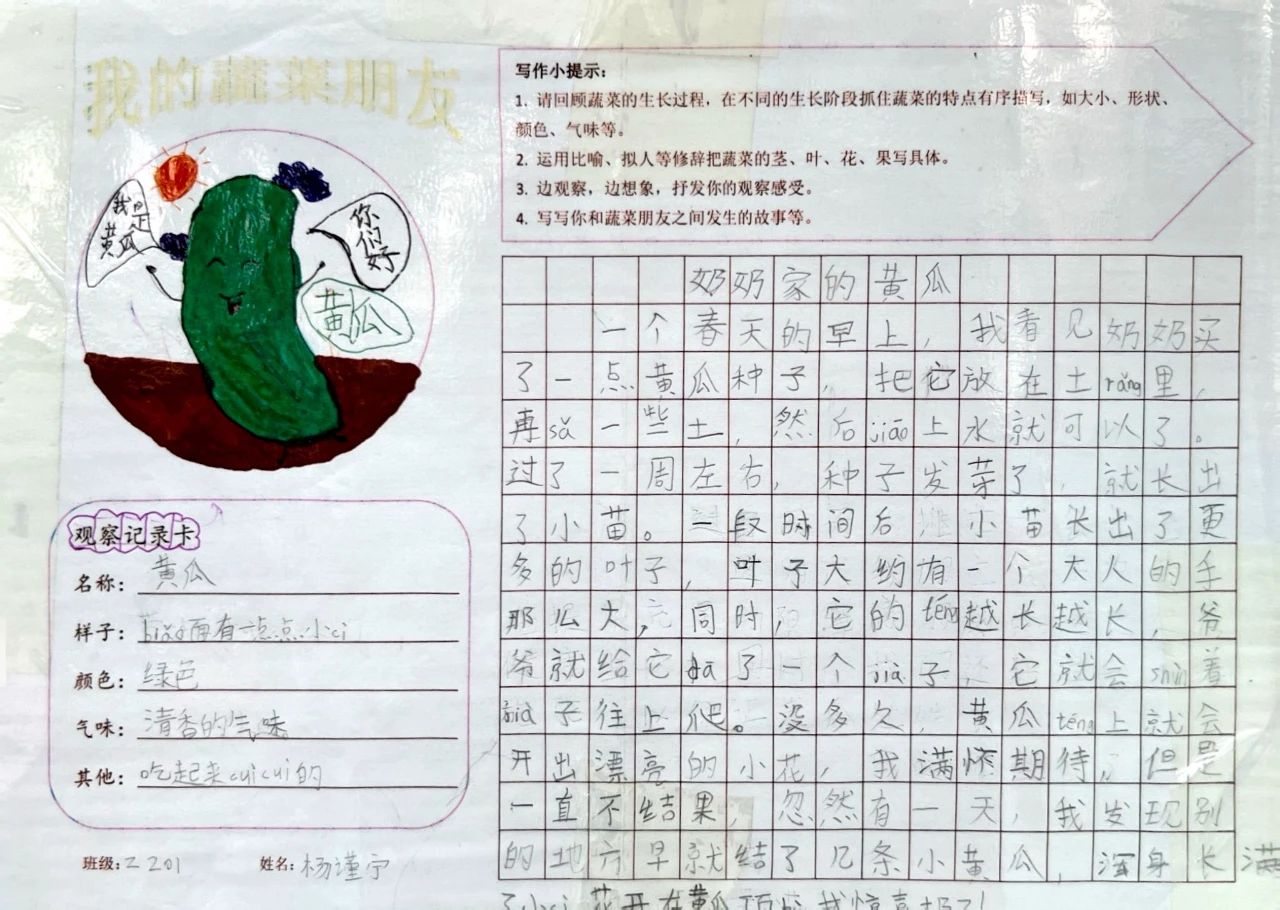 我的蔬菜朋友
我是
黄瓜
你们好
黄瓜
观察记录卡
名称：黄瓜
样子：biǎo面有一点点小ci
颜色：绿色
气味：清香的气味
其他：吃起来cuìcuì的
班级：二201
姓名：杨谨宁
写作小提示：
1. 请回顾蔬菜的生长过程，在不同的生长阶段抓住蔬菜的特点有序描写，如大小、形状、
颜色、气味等。
2. 运用比喻、拟人等修辞把蔬菜的茎、叶、花、果写具体。
3. 边观察，边想象，抒发你的观察感受。
4. 写写你和蔬菜朋友之间发生的故事等。
奶奶家的黄瓜
一个春天的早上，我看见奶奶买
了一点黄瓜种子，把它放在土rǎng里，
再sǎ一些土，然后jiāo上水就可以了。
过了一周左右，种子发芽了，就长出
了小苗。一段时间后小苗长出了更
多的叶子，叶子大约有一个大人的手
那么大，同时，它的téng越长越长，爷
爷就给它dā了一个jià子，它就会shùn着
jià子往上爬。没多久，黄瓜téng上就会
开出漂亮的小花，我满怀期待，但是
一直不结果，忽然有一天，我发现别
的地方早就结了几条小黄瓜，浑身长满
了小ci花开在黄瓜顶